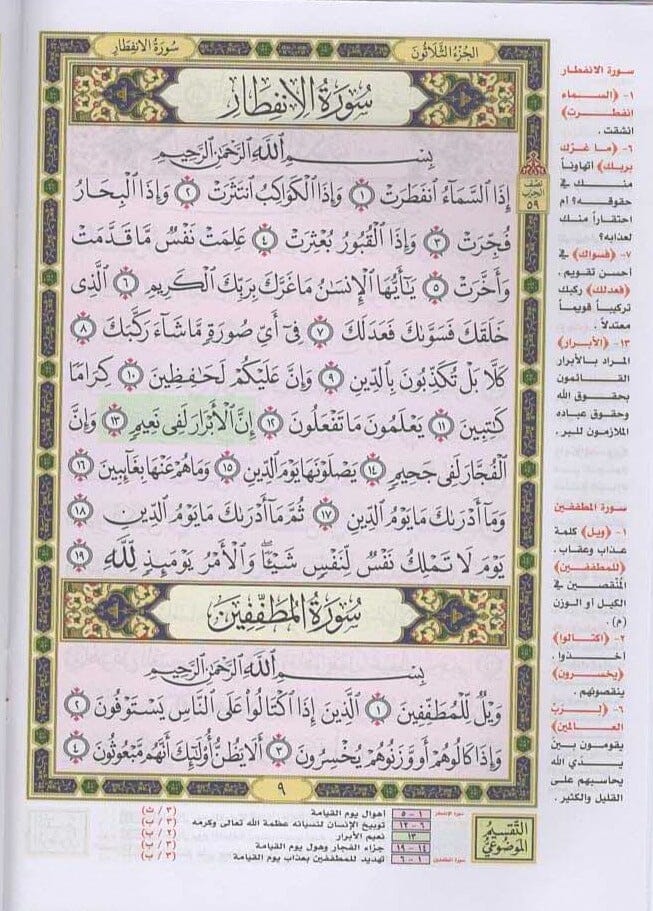 سُورَةُ الِانفِطَارِ
الجُزْءُ الثَّلَاثُونَ
سُورَةُ الِانفِطَارِ
بِسْمِ اللَّهِ الرَّحْمَٰنِ الرَّحِيمِ
إِذَا السَّمَاءُ انفَطَرَتْ ١ وَإِذَا الْكَوَاكِبُ انتَثَرَتْ ٢ وَإِذَا الْبِحَارُ
فُجِّرَتْ ٣ وَإِذَا الْقُبُورُ بُعْثِرَتْ ٤ عَلِمَتْ نَفْسٌ مَّا قَدَّمَتْ
وَأَخَّرَتْ ٥ يَٰأَيُّهَا الْإِنسَٰنُ مَا غَرَّكَ بِرَبِّكَ الْكَرِيمِ ٦ الَّذِى
خَلَقَكَ فَسَوَّىٰكَ فَعَدَلَكَ ٧ فِىٓ أَىِّ صُورَةٍ مَّا شَآءَ رَكَّبَكَ ٨
كَلَّا بَلْ تُكَذِّبُونَ بِالدِّينِ ٩ وَإِنَّ عَلَيْكُمْ لَحَٰفِظِينَ ١٠ كِرَامًا
كَٰتِبِينَ ١١ يَعْلَمُونَ مَا تَفْعَلُونَ ١٢ إِنَّ الْأَبْرَارَ لَفِى نَعِيمٍ ١٣ وَإِنَّ
الْفُجَّارَ لَفِى جَحِيمٍ ١٤ يَصْلَوْنَهَا يَوْمَ الدِّينِ ١٥ وَمَا هُمْ عَنْهَا بِغَآئِبِينَ ١٦
وَمَآ أَدْرَىٰكَ مَا يَوْمُ الدِّينِ ١٧ ثُمَّ مَآ أَدْرَىٰكَ مَا يَوْمُ الدِّينِ ١٨
يَوْمَ لَا تَمْلِكُ نَفْسٌ لِّنَفْسٍ شَيْـًٔا ۖ وَالْأَمْرُ يَوْمَئِذٍ لِّلَّهِ ١٩
سُورَةُ المُطَفِّفِينَ
بِسْمِ اللَّهِ الرَّحْمَٰنِ الرَّحِيمِ
وَيْلٌ لِّلْمُطَفِّفِينَ ١ الَّذِينَ إِذَا اكْتَالُوا عَلَى النَّاسِ يَسْتَوْفُونَ ٢
وَإِذَا كَالُوهُمْ أَو وَّزَنُوهُمْ يُخْسِرُونَ ٣ أَلَا يَظُنُّ أُو۟لَٰٓئِكَ أَنَّهُم مَّبْعُوثُونَ ٤
٩
نصف
الحزب
٥٩
سورة الانفطار
١- ﴿السماء
انفطرت﴾
انشقت .
٦- ﴿ما غرك
بربك﴾ أتهاوناً
منك في
حقوقه؟ أم
احتقاراً منك
لعذابه؟
٧- ﴿فسواك﴾ في
أحسن تقويم .
﴿فعدلك﴾ ركبك
تركيباً قويماً
معتدلاً .
١٣- ﴿الأبرار﴾
المراد بالأبرار
القائمون
بحقوق الله
وحقوق عباده
الملازمون للبر .
سورة المطففين
١- ﴿ويل﴾ كلمة
عذاب وعقاب .
﴿للمطففين﴾
المُنْقصين في
الكيل أو الوزن
(م) .
٢- ﴿اكتالوا﴾
أخذوا .
﴿يخسرون﴾
ينقصونهم .
٦- ﴿لرب
العالمين﴾
يقومون بين
يدي الله
يحاسبهم على
القليل والكثير .
التَّقسِيمُ
المَوْضُوعِيُّ
سورة الانفطار ١ - ٥ أهوال يوم القيامة (٣ / ث)
٦ - ١٢ توبيخ الإنسان لنسيانه عظمة الله تعالى وكرمه (٣ / ب)
١٣ نعيم الأبرار (٢ / ب)
١٤ - ١٩ جزاء الفجار وهول يوم القيامة (٣ / ب)
سورة المطففين ١ - ٦ تهديد للمطففين بعذاب يوم القيامة (٣ / ب)